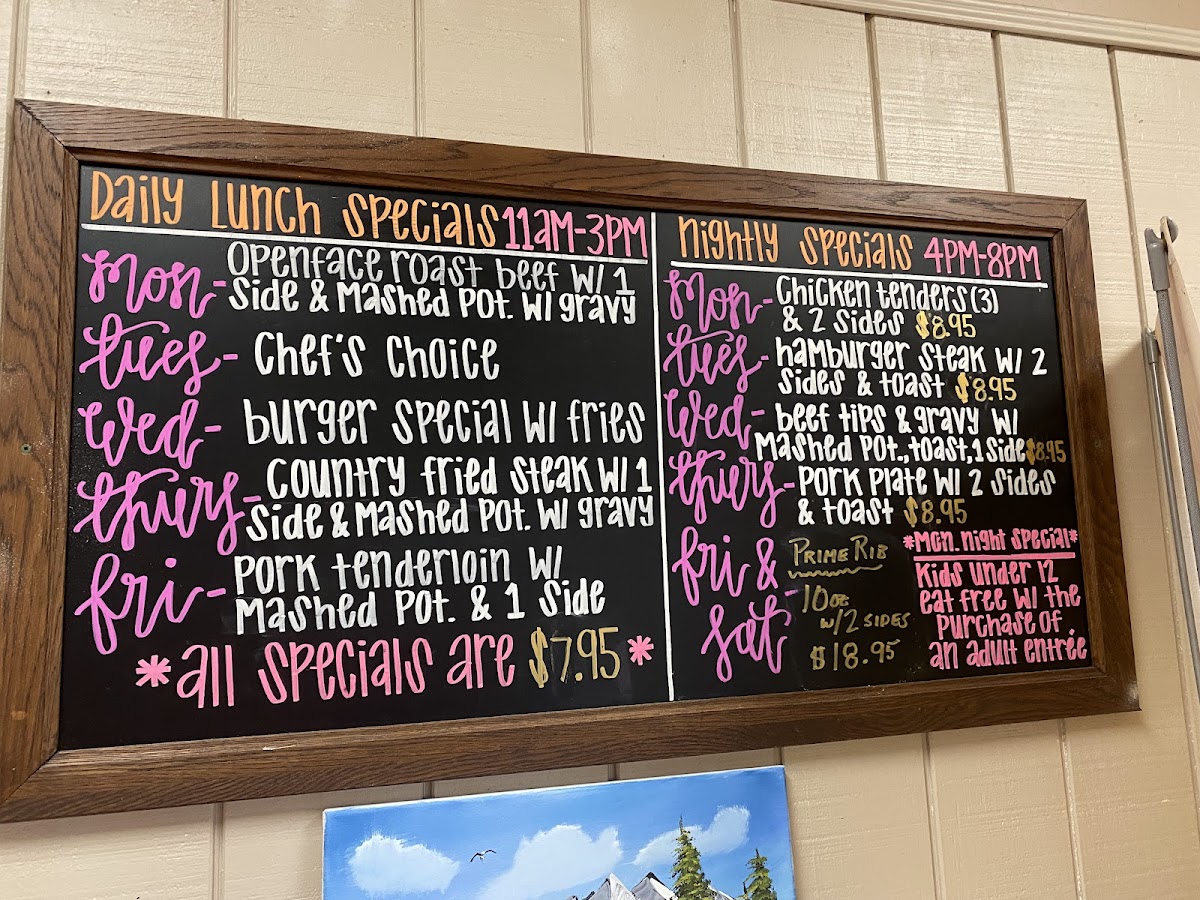 Daily Lunch Specials 11am-3pm
Mon- Openface roast beef w/ 1
Side & Mashed Pot. w/ gravy
Tues- Chef's Choice
Wed- Burger special w/ fries
Thurs- Country fried steak w/ 1
Side & Mashed Pot. w/ gravy
Fri- Pork tenderloin w/
Mashed Pot. & 1 Side
*All Specials are $7.95*
Nightly Specials 4pm-8pm
Mon- Chicken tenders (3)
& 2 Sides $8.95
Tues- hamburger steak w/ 2
Sides & toast $8.95
Wed- beef tips & gravy w/
Mashed Pot., toast, 1 Side $8.95
Thurs- Pork Plate w/ 2 Sides
& toast $8.95
Fri & Sat- Prime Rib
10oz
w/2 sides
$18.95
*Mon. night special*
Kids under 12
eat free w/ the
purchase of
an adult entrée